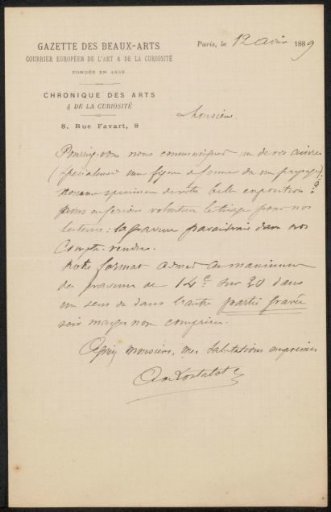 GAZETTE DES BEAUX-ARTS
COURRIER EUROPÉEN DE L'ART & DE LA CURIOSITÉ
FONDÉE EN 1859
CHRONIQUE DES ARTS
& DE LA CURIOSITÉ
8, Rue Favart, 8
Paris, le 12 avril 1889
Monsieur
Pourriez-vous nous communiquer un de vos cuivres
(spécialement une figure à défaut de un paysage)
comme spécimen de votre belle exposition ?
Nous en ferions volontiers le tirage pour nos
lecteurs : la gravure paraîtrait dans nos
Compte-rendus.
Notre format admet au maximum
des gravures de 14 c sur 20 dans
un sens ou dans l'autre partie gravée
sans marges non comprises.
Agréez monsieur, mes salutations empressées
A de Lostalot